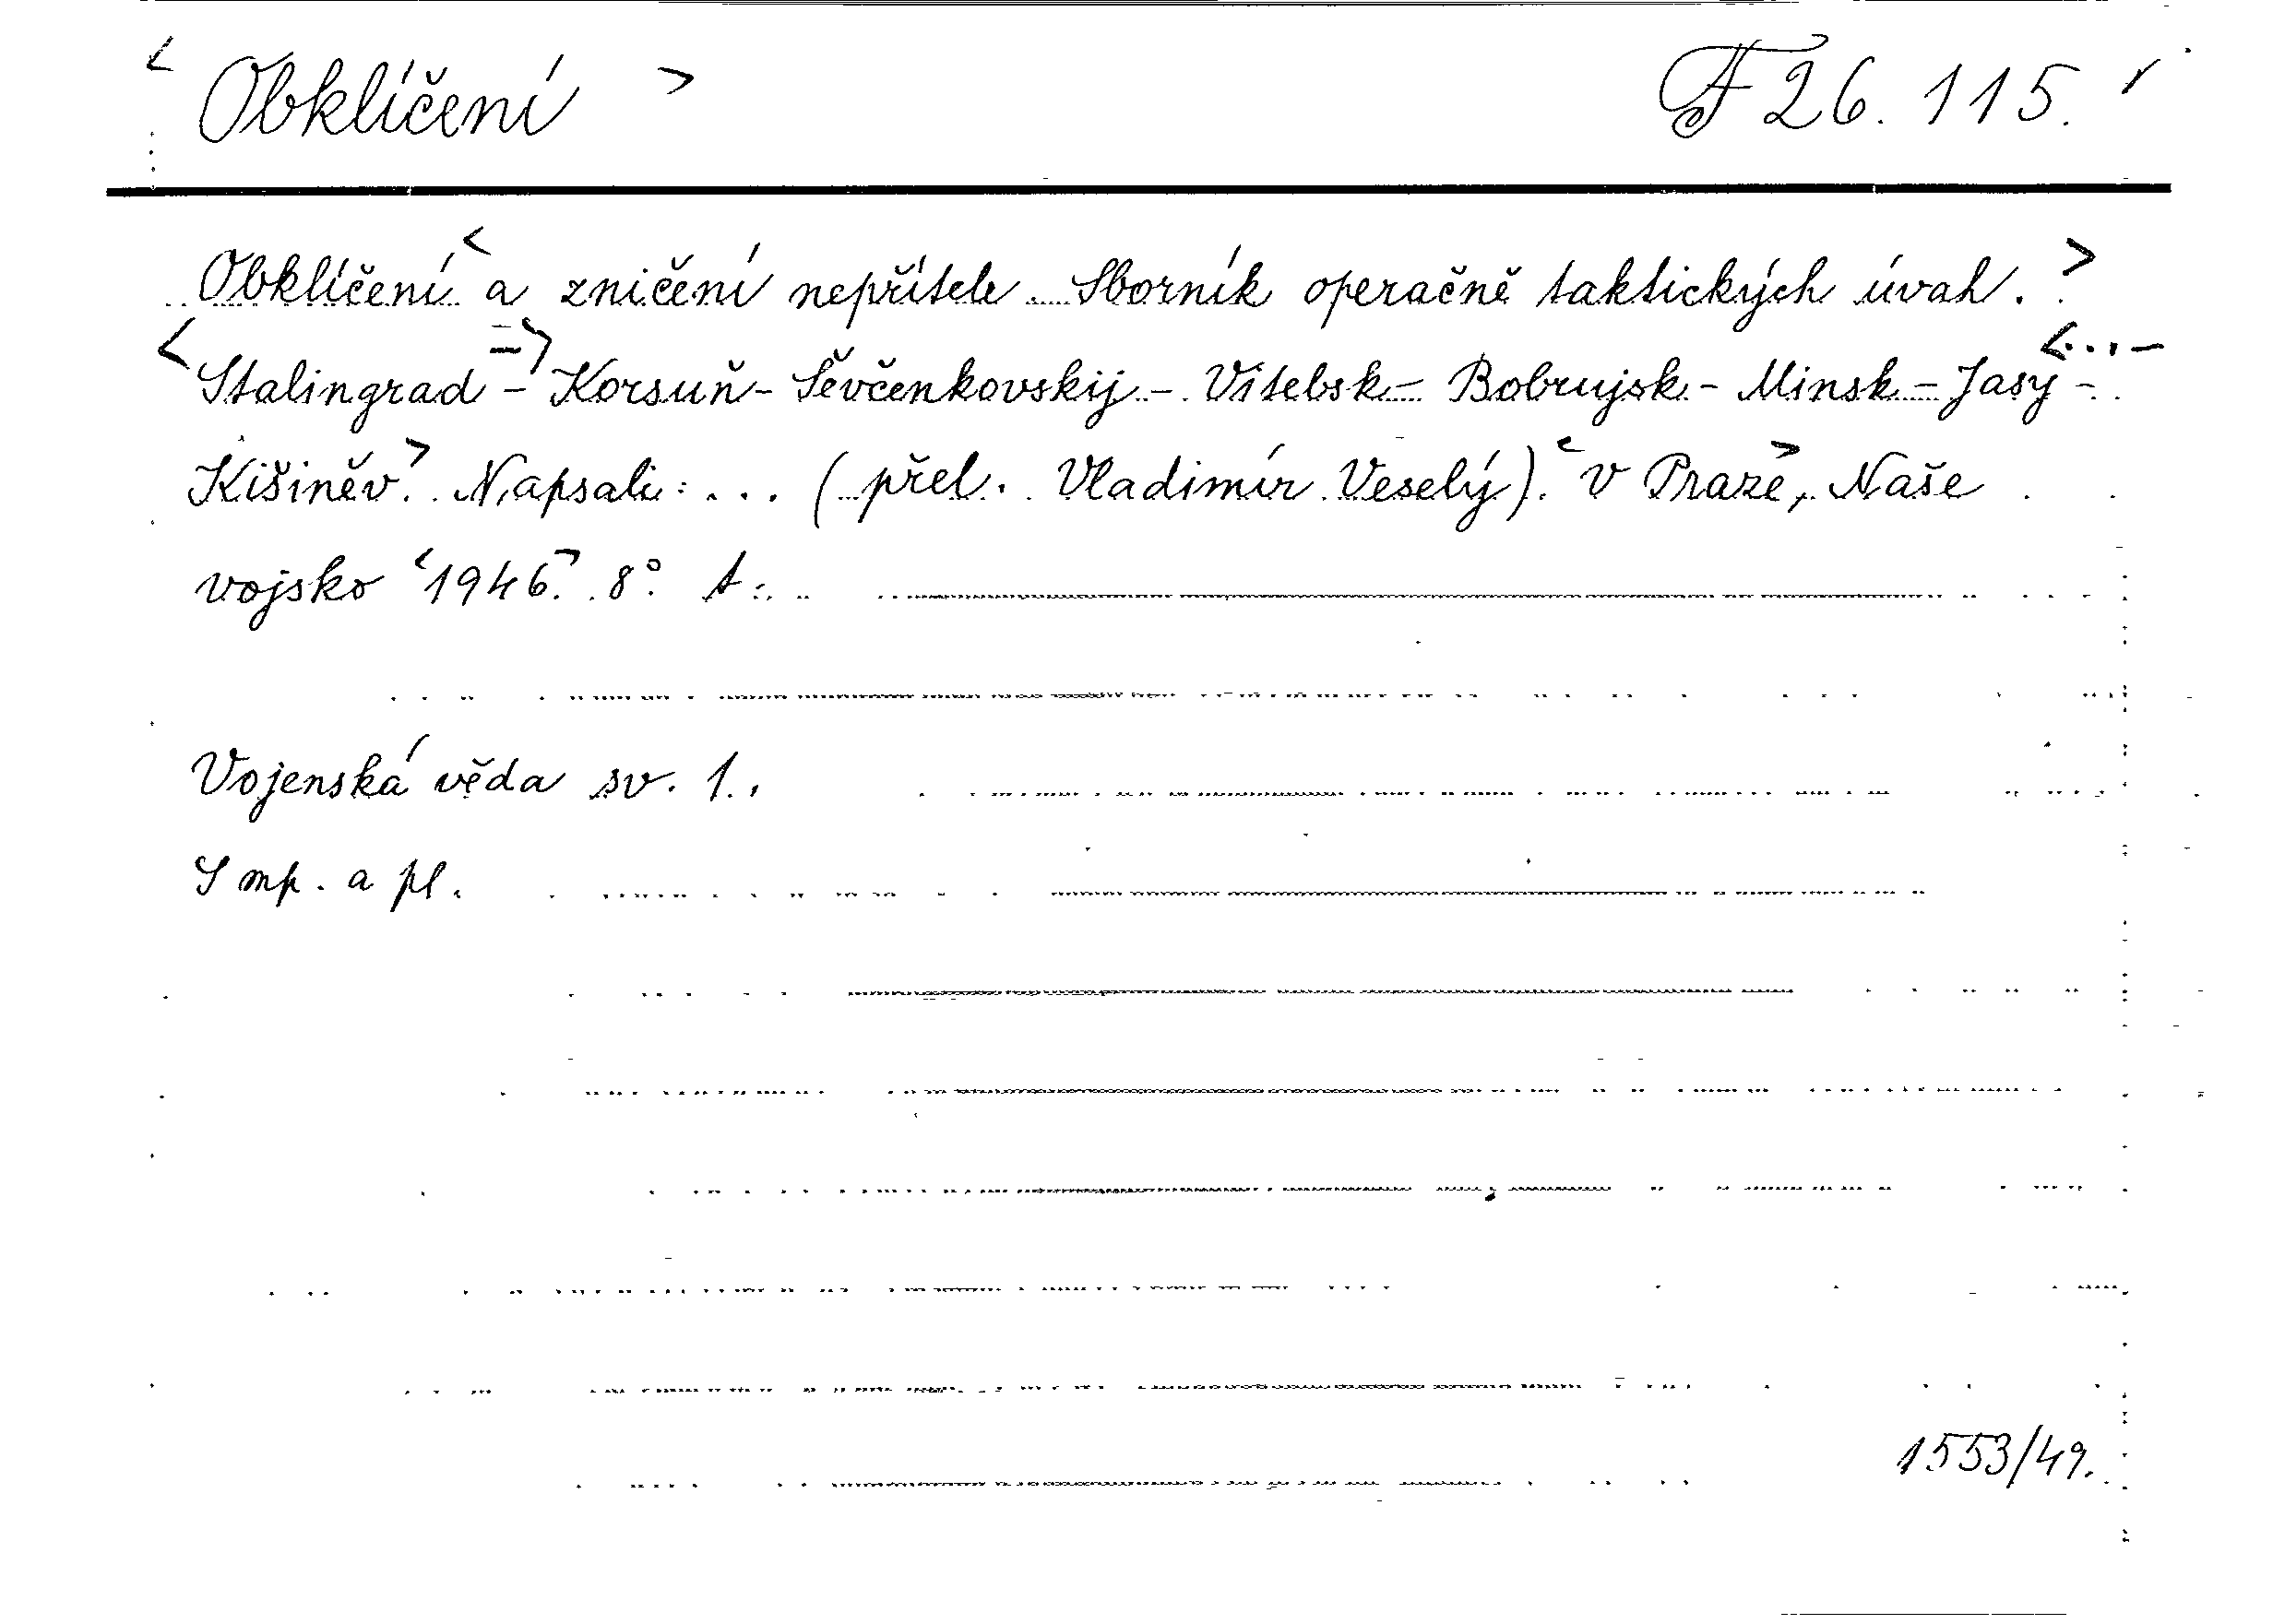 < Obklíčení > F 26.115.
Obklíčení < a zničení nepřítele. Sborník operačně taktických úvah. >
< Stalingrad - => Korsuň - Ševčenkovskij - Vitebsk - Bobrujsk - Minsk - Jasy - <...-
Kišiněv. > Napsali: ... (přel. Vladimír Veselý). < v Praze >, Naše
vojsko < 1946. > 8°.
Vojenská věda sv. 1.,
S mp. a pl.
1553/49.